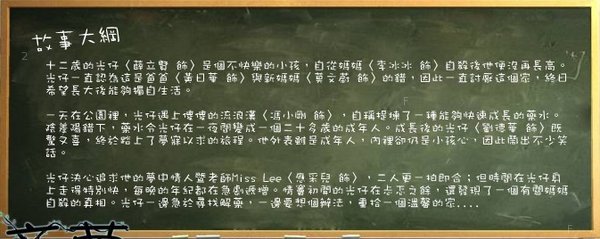 故事大綱
十二歲的光仔〈薛立賢 飾〉是個不快樂的小孩，自從媽媽〈李冰冰 飾〉自殺後他便沒再長高。
光仔一直認為這是爸爸〈黃日華 飾〉與新媽媽〈莫文蔚 飾〉的錯，因此一直討厭這個家，終日
希望長大後能夠獨自生活。
一天在公園裡，光仔遇上傻傻的流浪漢〈馮小剛 飾〉，自稱提煉了一種能夠快速成長的藥水。
陰差陽錯下，藥水令光仔在一夜間變成一個二十多歲的成年人。成長後的光仔〈劉德華 飾〉既
驚又喜，終於踏上了夢寐以求的旅程。他外表雖是成年人，內裡卻仍是小孩心，因此鬧出不少笑
話。
光仔決心追求他的夢中情人暨老師Miss Lee〈應采兒 飾〉，二人更一拍即合；但時間在光仔身
上走得特別快，每晚的年紀都在急劇遞增。情竇初開的光仔在忐忑之餘，還發現了一個有關媽媽
自殺的真相。光仔一邊急於尋找解藥，一邊要想個辦法，重拾一個溫馨的家....